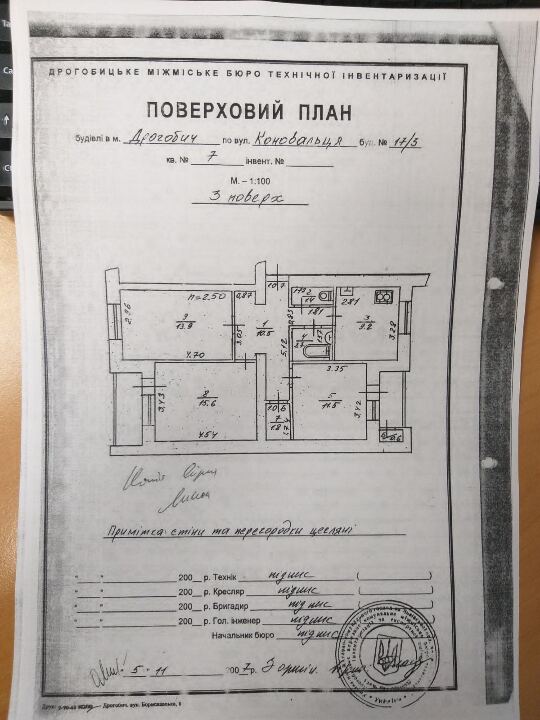 ДРОГОБИЦЬКЕ МІЖМІСЬКЕ БЮРО ТЕХНІЧНОЇ ІНВЕНТАРИЗАЦІЇ
ПОВЕРХОВИЙ ПЛАН
будівлі в м. Дрогобич по вул. Коновальця буд. № 17/3
кв. № 7 інвент. №
М. – 1:100
3 поверх
h=2.50
0,87
10,7
2
1,4
2.81
2,96
9
13.9
1.81
3
9.2
3.28
0,83
1
10.5
3.05
5,12
4.70
3.35
3,43
8
15.6
5
11.5
3,42
10,6
7
1.8
4.54
Примітка стіни та перегородки цегляні
" " 200 р. Технік підпис
" " 200 р. Кресляр підпис
" " 200 р. Бригадир підпис
" " 200 р. Гол. інженер підпис
Начальник бюро підпис
5 - 11 2007 р.
Дрогобич, вул. Бориславська, 8